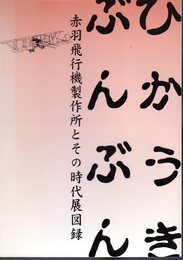 ひかうき
ぶんぶん
ぶんぶん
赤羽飛行機製作所とその時代展図録